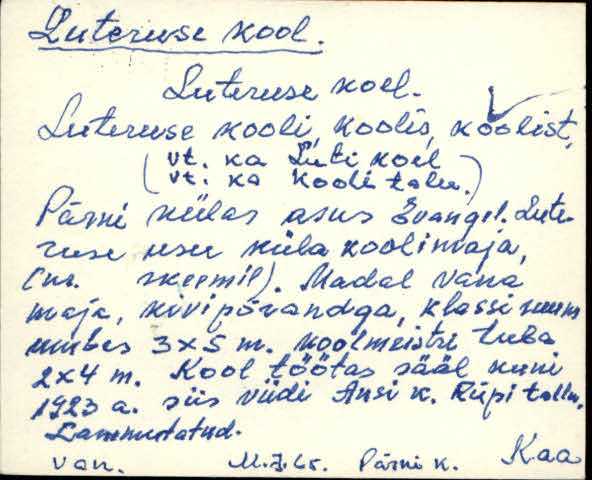 Luteruse kool.
Luteruse kool.
Luteruse kooli, koolis, koolist,
(vt. ka Luti kool
vt. ka Kooli talu.)
Pärni külas asus Evangel. Lute-
ruse usu küla koolimaja,
(nr. skeemil). Madal vana
maja, kivipõrandga, klassi ruum
umbes 3x5 m. koolmeistri tuba
2x4 m. Kool töötas sääl kuni
1923 a. siis viidi Ansi k. Riipi tallu.
Lammutatud.
van. Pärni k. Kaa